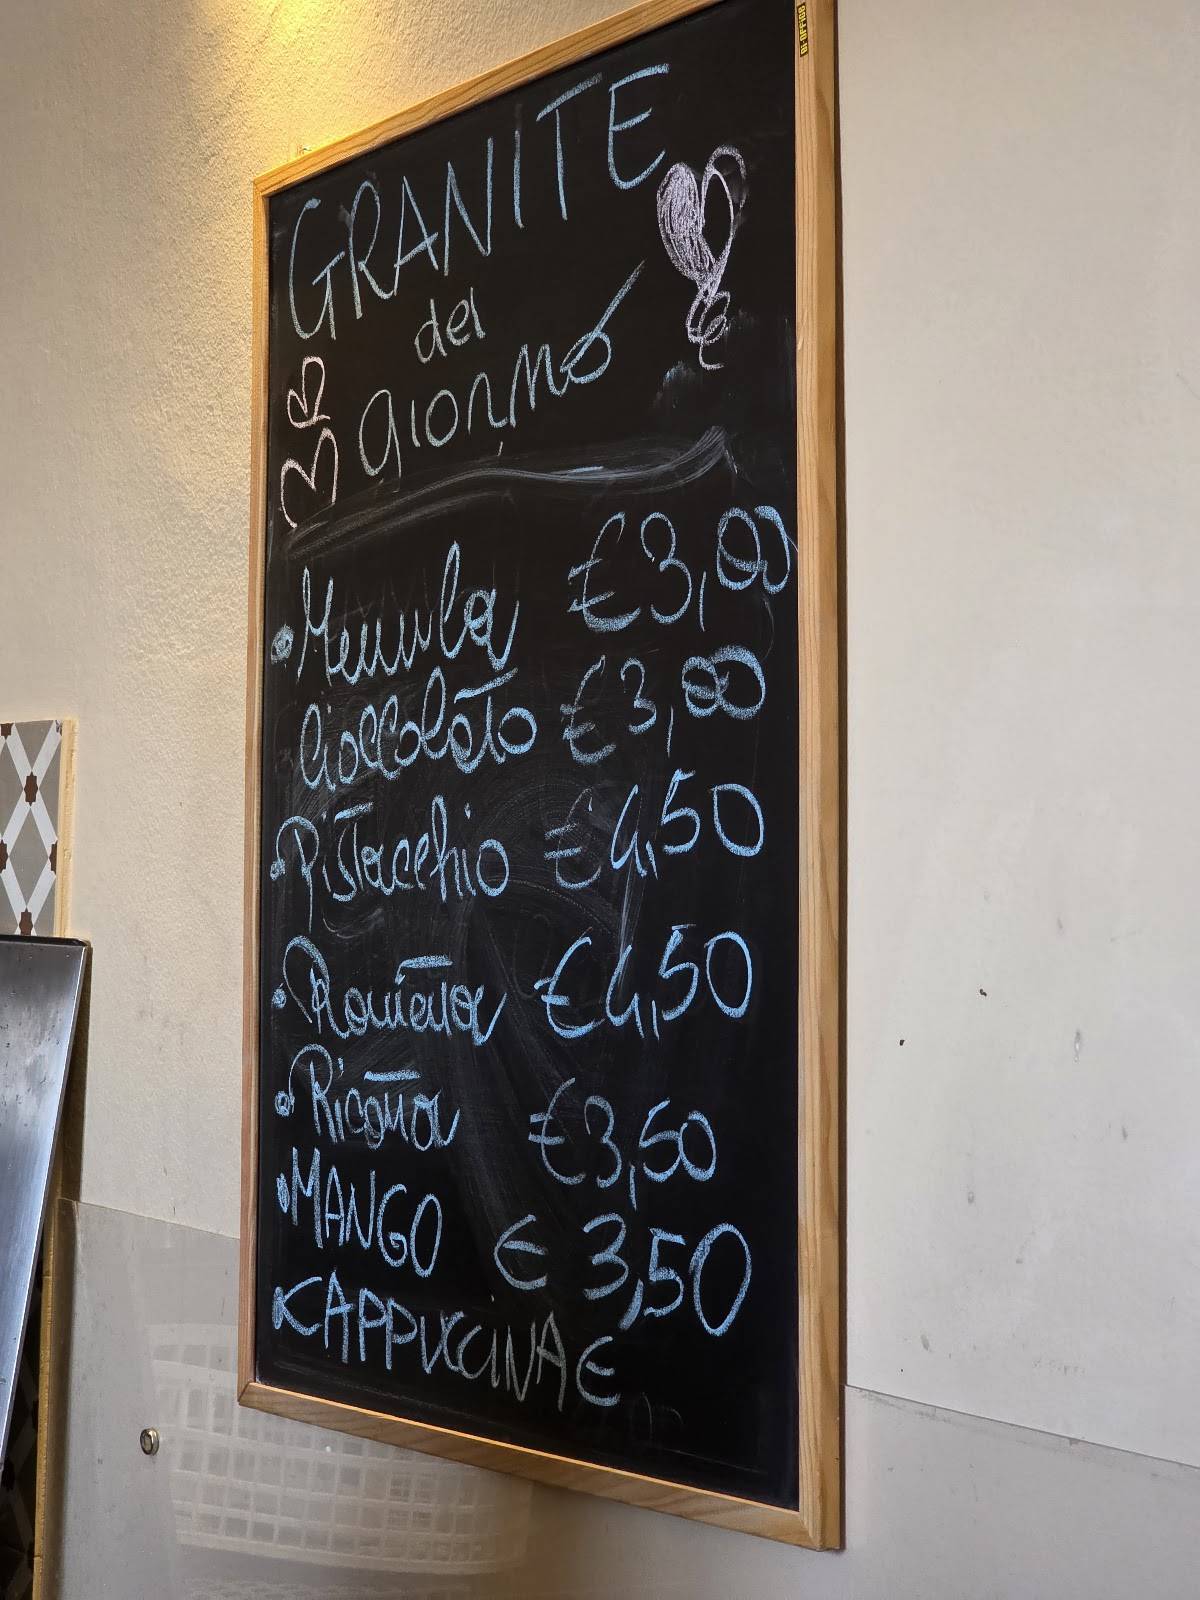 BI-OFFICE
GRANITE
del
giorno
• Mennula €3,00
Cioccolato €3,00
• Pistacchio €4,50
• €4,50
• Ricotta €3,50
• MANGO € 3,50
CAPPUCCINA €